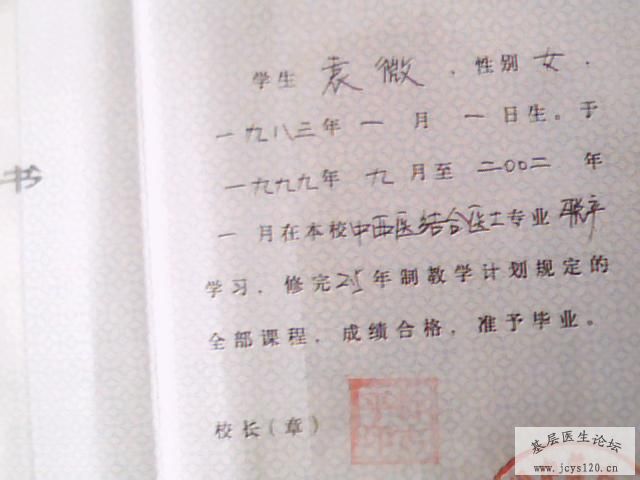 学生 袁微 ，性别 女 ，
一九八三年 一 月 一 日生。于
一九九九年 九 月至 二00二 年
一 月在本校中西医结合医士专业 脱产
学习，修完2.5年制教学计划规定的
全部课程，成绩合格，准予毕业。
校长（章）
书
基层医生论坛
www.jcys120.cn